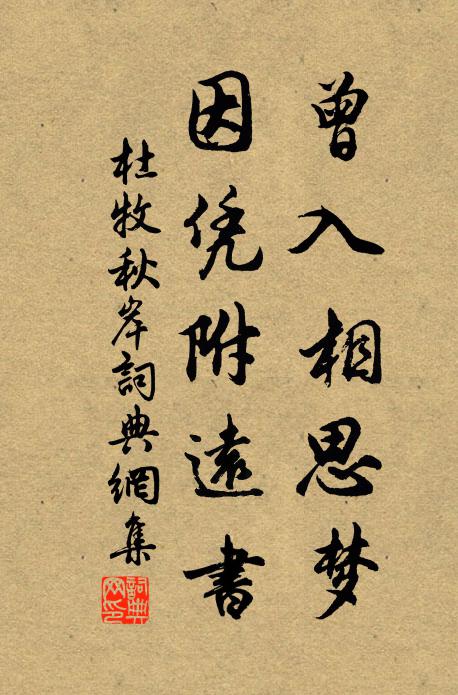 曾入相思梦
因凭附遠書
杜牧秋岸詞典網集
詞典网印